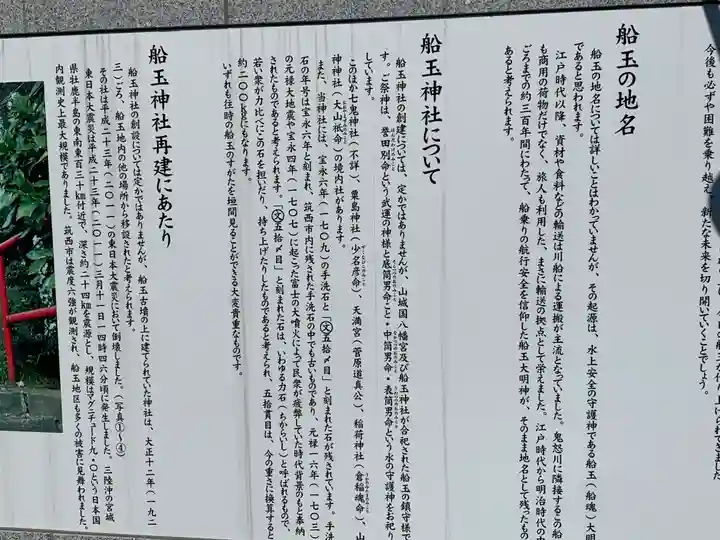 今後も必ずや困難を乗り越え、新たな未来を切り開いていくことでしょう。
船玉の地名
船玉の地名については詳しいことはわかっていませんが、その起源は、水上安全の守護神である船玉（船魂）大明
であると思われます。
江戸時代以降、資材や食料などの輸送は川船による運搬が主流となっていました。鬼怒川に隣接するこの船
も商用の荷物だけでなく、旅人も利用した、まさに輸送の拠点として栄えました。江戸時代から明治時代の中
ごろまでの約三百年間にわたって、船乗りの航行安全を信仰した船玉大明神が、そのまま地名として残ったもの
あると考えられます。
船玉神社について
船玉神社の創建については、定かではありませんが、山城国八幡宮及び船玉神社が合祀された船玉の鎮守様で
す。ご祭神は、誉田別命という武運の神様と底筒男命・中筒男命・表筒男命という水の守護神をお祀り
しています。
このほか七鬼神社（不詳）、粟島神社（少名彦命）、天満宮（菅原道真公）、稲荷神社（倉稲魂命）、山
神神社（大山祗命）の境内社があります。
また、当神社には、宝永六年（一七〇九）の手洗石と「㊛五拾〆目」と刻まれた石が残されています。手洗
石の年号は宝永六年と刻まれ、筑西市内に残された手洗石の中でも古いものであり、元禄一六年（一七〇三）
の元禄大地震や宝永四年（一七〇七）に起こった富士の大噴火によって民衆が疲弊していた時代背景のもと奉納
されたものであると考えられます。「㊛五拾〆目」と刻まれた石は、いわゆる力石（ちからいし）と呼ばれるもので、
若い衆が力比べにこの石を担いだり、持ち上げたりしたものであると考えられ、五拾貫目は、今の重さに換算すると
約二〇〇kgにもなります。
いずれも往時の船玉のすがたを垣間見ることができる大変貴重なものです。
船玉神社再建にあたり
船玉神社の創設については定かではありませんが、船玉古墳の上に建てられていた神社は、大正十二年（一九二
三）ごろ、船玉地内の他の場所から移設されたと考えられます。
その社は平成二十三年（二〇一一）の東日本大震災において倒壊しました。（写真①～④）
東日本大震災は平成二十三年（二〇一一）三月十一日一四時四六分頃に発生しました。三陸沖の宮城
県牡鹿半島の東南東百三十km付近で、深さ約二十四kmを震源とし、規模はマグニチュード九・〇という日本国
内観測史上最大規模でありました。筑西市は震度六強が観測され、船玉地区も多くの被害に見舞われました。